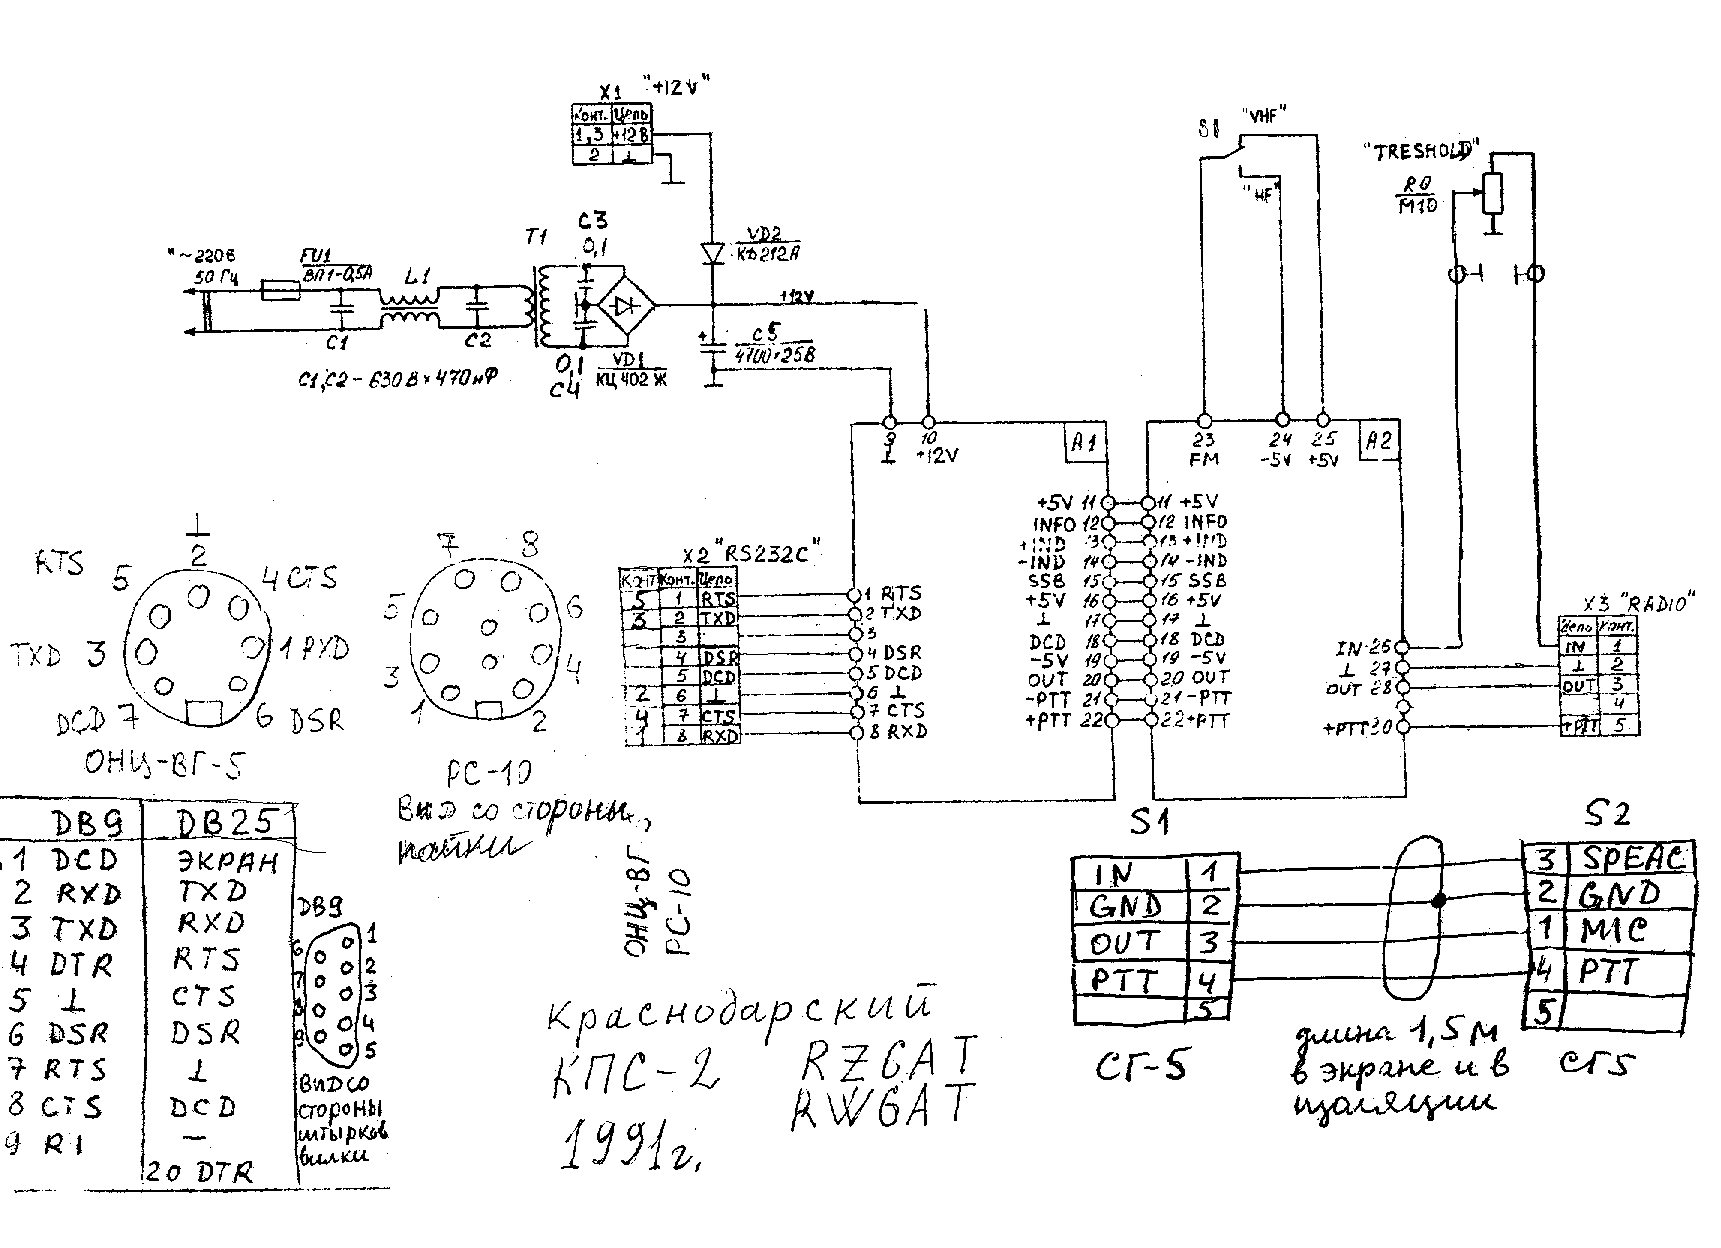 X1 "+12V"
Конт. Цепь
1,3 +12В
2 ⊥
"~220В
50 Гц
FU1
ВП1-0,5А
L1
T1
C3
0,1
C1
C2
C1,C2-630В×470нФ
0,1
C4
VD1
КЦ402Ж
VD2
КД212А
+12V
+ C5
4700×25В
S1
"VHF"
"HF"
"TRESHOLD"
9 ⊥
10 +12V
A1
23 FM
24 -5V
25 +5V
A2
+5V 11 11 +5V
INFO 12 12 INFO
+IND 13 13 +IND
-IND 14 14 -IND
SSB 15 15 SSB
+5V 16 16 +5V
⊥ 17 17 ⊥
DCD 18 18 DCD
-5V 19 19 -5V
OUT 20 20 OUT
-PTT 21 21 -PTT
+PTT 22 22 +PTT
X2 "RS232C"
Конт Конт. Цепь
5 1 RTS 1 RTS
3 2 TXD 2 TXD
3 3
4 DSR 4 DSR
5 DCD 5 DCD
2 6 ⊥ 6 ⊥
4 7 CTS 7 CTS
1 8 RXD 8 RXD
ОНЦ-ВГ
РС-10
X3 "RADIO"
Цепь Конт.
IN 26 IN 1
⊥ 27 ⊥ 2
OUT 28 OUT 3
4
+PTT 30 +PTT 5
⊥
2
RTS 5
4 CTS
TXD 3
1 RXD
DCD 7
6 DSR
ОНЦ-ВГ-5
7 8
5 6
3 4
1 2
РС-10
Вид со стороны
пайки
DB9 DB25
1 DCD ЭКРАН
2 RXD TXD
3 TXD RXD
4 DTR RTS
5 ⊥ CTS
6 DSR DSR
7 RTS ⊥
8 CTS DCD
9 RI —
20 DTR
DB9
1
6
2
7
3
8
4
9
5
Вид со
стороны
штырков
вилки
Краснодарский
КПС-2 RZ6AT
RW6AT
1991г.
S1
IN 1
GND 2
OUT 3
PTT 4
5
СГ-5
S2
3 SPEAC
2 GND
1 MIC
4 PTT
5
СГ5
длина 1,5м
в экране и в
изоляции